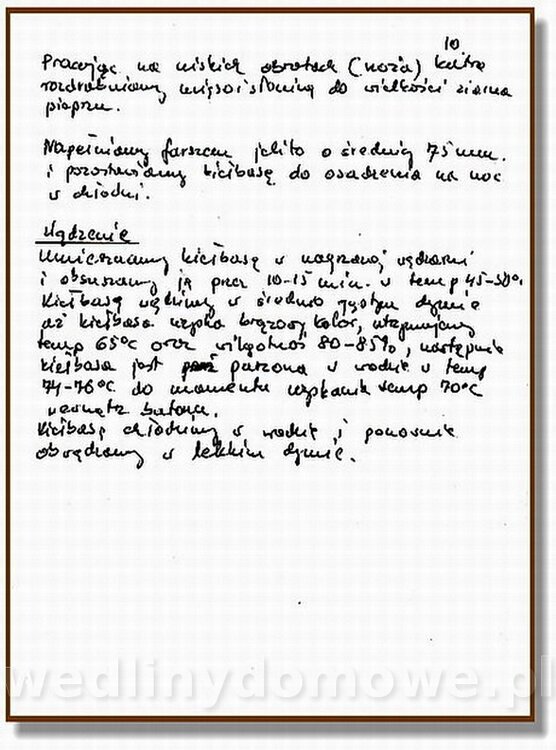 10.
Pracując na niskich obrotach (noża) kutra
rozdrabniamy mięso i słoninę do wielkości ziarna
pieprzu.
Napełniamy farszem jelito o średnicy 75 mm.
i pozostawiamy kiełbasę do osadzenia na noc
w chłodni.
Wędzenie
Umieszczamy kiełbasę w nagrzanej wędzarni
i obsuszamy ją przez 10-15 min. w temp 45-50°.
Kiełbasę wędzimy w średnio gęstym dymie
aż kiełbasa uzyska brązowy kolor, utrzymujemy
temp 65°C oraz wilgotność 80-85%, następnie
kiełbasa jest parzona w wodzie w temp
74-76°C do momentu uzyskania temp 70°C
wewnątrz batonu.
Kiełbasę chłodzimy w wodzie i ponownie
obwędzamy w lekkim dymie.
wedlinydomowe.pl